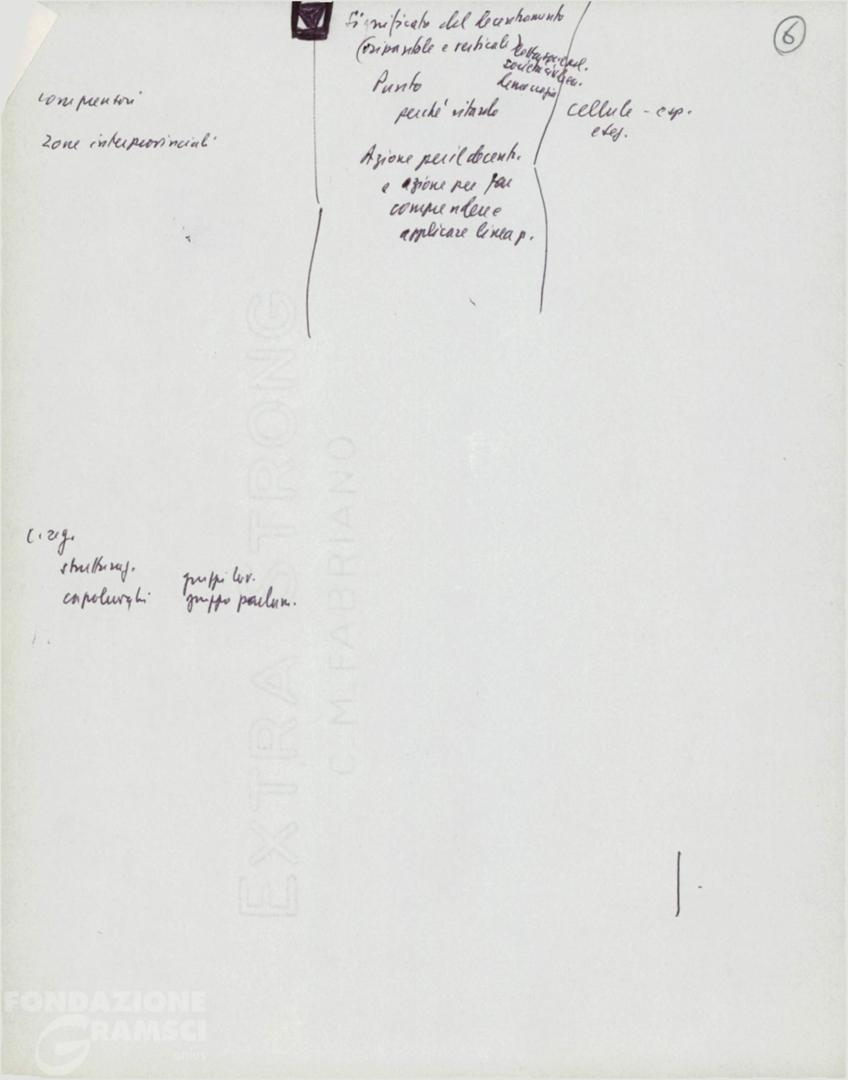 6
Significato del decentramento
(orizzontale e verticale)
società civile
democrazia
Punto
perché ritardo
cellule - esp.
eseg.
Azione per il decentr.
e azione per far
comprendere e
applicare linea p.
comprensori
zone interprovinciali
C. reg.
capoluoghi
gruppi lav.
gruppo parlam.
EXTRA STRONG
C.M. FABRIANO
FONDAZIONE
GRAMSCI
onlus